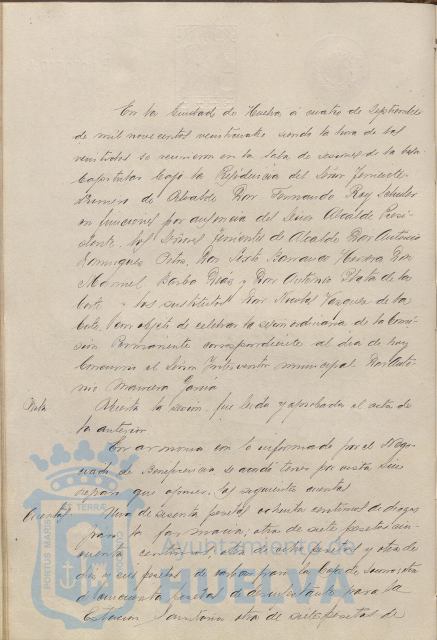 En la Ciudad de Huelva á cuatro de Septiembre
de mil novecientos veinticuatro siendo la hora de las
veintidos se reunieron en la Sala de sesiones de la Casa
Capitular bajo la Presidencia del Señor Teniente
primero de Alcalde Don Fernando Rey
en funciones por ausencia del Señor Alcalde Presi
dente, los Señores Tenientes de Alcalde Don Antonio
Dominguez Don Sixto Barranco Herrera Don
Manuel Barba Dias y Don Antonio Plata de la
Corte y los sustitutos Don Nicolas Vazquez de la
Corte, con objeto de celebrar la sesion ordinaria de la Comi
sion Permanente correspondiente al dia de hoy
Concurre el Señor Interventor municipal Don Anto
nio Garcia
Acta
Abierta la sesion, fué leida y aprobada el acta de
la anterior
En armonia con lo informado por el Nego
ciado de Beneficencia se acordó tener por vista sin
reparo que oponer, las siguientes cuentas
Cuentas
Una de sesenta pesetas ochenta centimos de drogas
para la farmacia; otra de siete pesetas cin
cuenta centimos; otra de ocho pesetas y otra de
dos y seis pesetas de carbon para la Casa de Socorro; otra
de cincuenta pesetas de desinfectante para la
Estacion Sanitaria otra de siete pesetas de
PORTUS MARIS
TERRAE
CUSTODIA
Ayuntamiento de
HUELVA